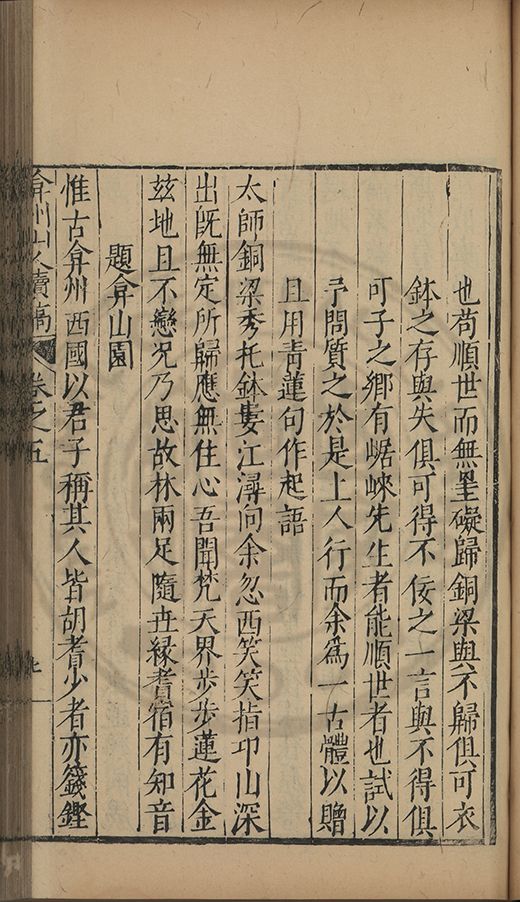 也苟順世而無罣礙歸銅梁與不歸俱可衣
鉢之存與失俱可得不佞之一言與不得俱
可子之鄉有崌崍先生者能順世者也試以
予問質之於是上人行而余為一古體以贈
且用青蓮句作起語
太師銅梁秀托鉢婁江潯向余忽西笑笑指卭山深
出既無定所歸應無住心吾聞梵天界步步蓮花金
兹地且不戀况乃思故林兩足隨丗緣耆宿有知音
題弇山園
惟古弇州西國以君子稱其人皆胡耈少者亦籛鏗
弇州山人續稿 卷之五